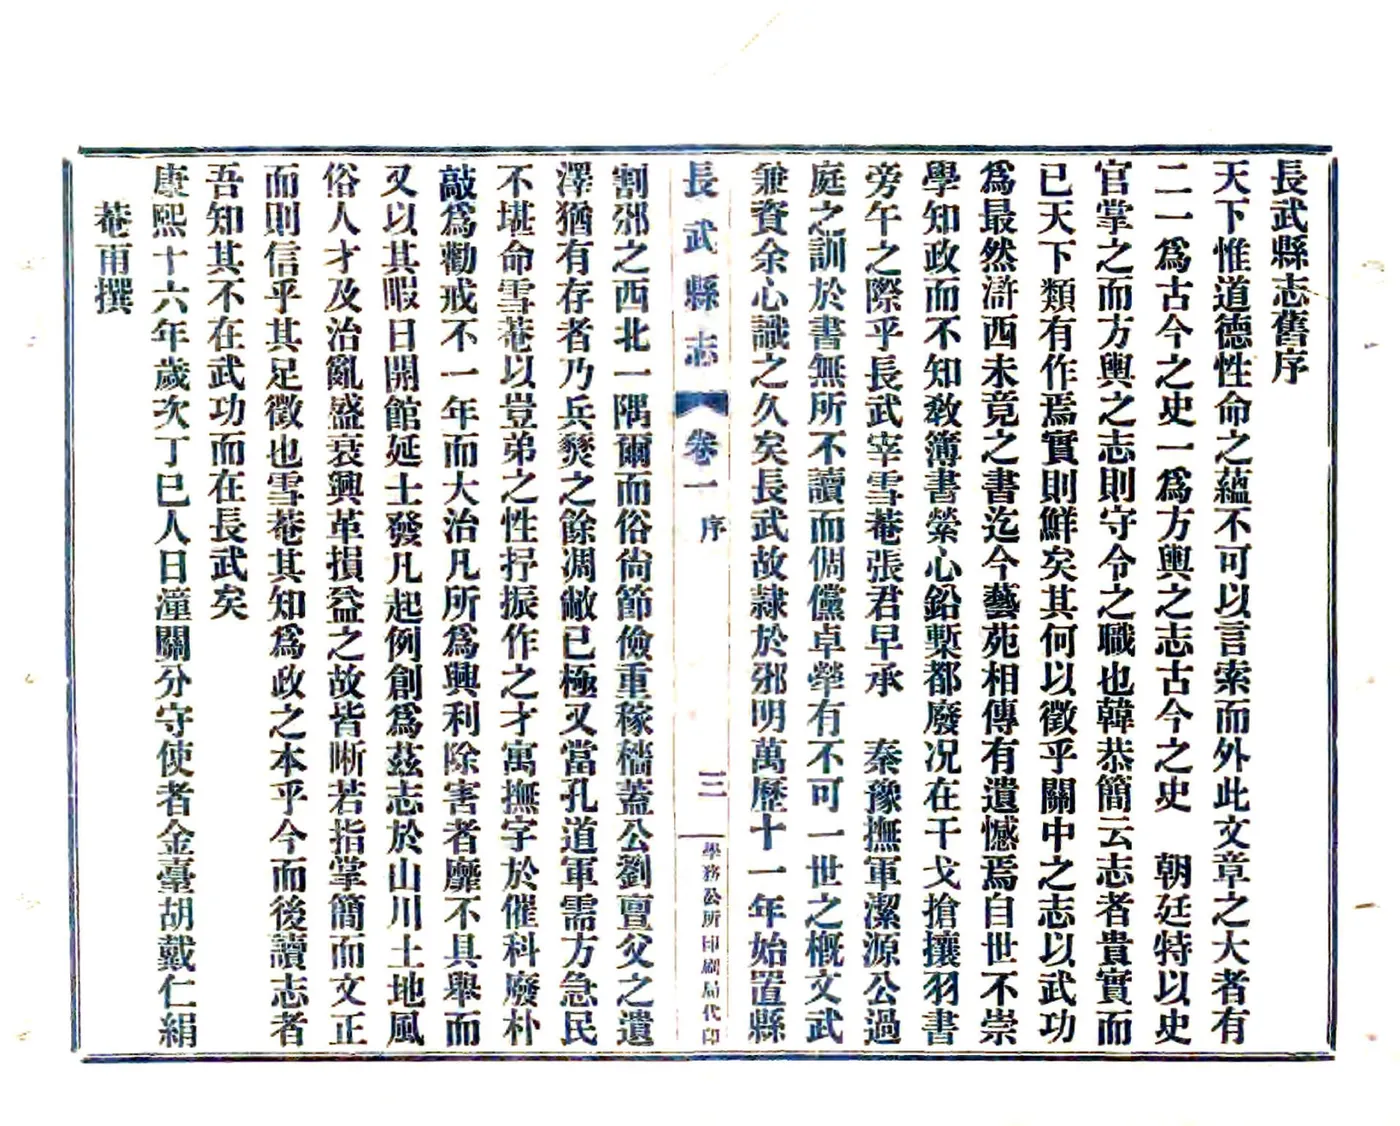 長武縣志舊序
天下惟道德性命之蘊不可以言索而外此文章之大者有
二一爲古今之史一爲方輿之志古今之史　朝廷特以史
官掌之而方輿之志則守令之職也韓恭簡云志者貴實而
已天下類有作焉實則鮮矣其何以徵乎關中之志以武功
爲最然滸西未竟之書迄今藝苑相傳有遺憾焉自世不崇
學知政而不知敎簿書縈心鉛槧都廢况在干戈搶攘羽書
旁午之際乎長武宰雪菴張君早承　秦豫撫軍潔源公過
庭之訓於書無所不讀而倜儻卓犖有不可一世之槪文武
兼資余心識之久矣長武故隷於邠明萬歷十一年始置縣
長武縣志　卷一　序　三　學務公所印刷局代印
割邠之西北一隅爾而俗尙節儉重稼穡蓋公劉亶父之遺
澤猶有存者乃兵燹之餘凋敝已極又當孔道軍需方急民
不堪命雪菴以豈弟之性抒振作之才寓撫字於催科廢朴
敲爲勸戒不一年而大治凡所爲興利除害者靡不具舉而
又以其暇日開館延士發凡起例創爲茲志於山川土地風
俗人才及治亂盛衰興革損益之故皆晰若指掌簡而文正
而則信乎其足徵也雪菴其知爲政之本乎今而後讀志者
吾知其不在武功而在長武矣
康熙十六年歲次丁巳人日潼關分守使者金臺胡戴仁絹
菴甫撰